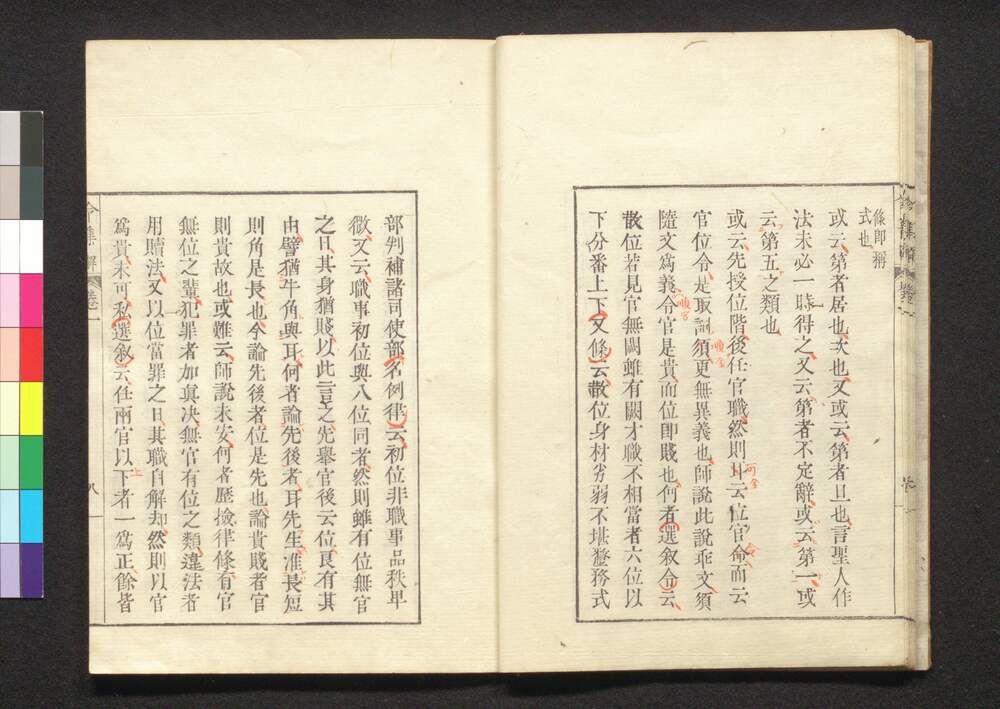 條即稱
式也
或云第者居也次也又或云第者且也言聖人作
法未必一時得之又云第者不定辭或云第一或
云第五之類也
或云先授位階後任官職然則可云位官命而云
官位令是取訓須更無異義也師說此說乖文須
隨文爲義令官是貴而位即賤也何者選叙令云
散位若見官無闕雖有闕才職不相當者六位以
下分番上下又條云散位身材劣弱不堪釐務式
部判補諸司使部名例律云初位非職事品秩卑
微又云職事初位與八位同者然則雖有位無官
之日其身猶賤以此言之先舉官後云位良有其
由譬猶牛角與耳何者論先後者耳先生准長短
則角是長也今論先後者位是先也論貴賤者官
則貴故也或難云師說未安何者歷撿律條有官
無位之輩犯罪者加眞决無官有位之類違法者
用贖法又以位當罪之日其職自解却然則以官
爲貴未可私選叙云任兩官以下者一爲正餘皆
上
令集解 卷一
八